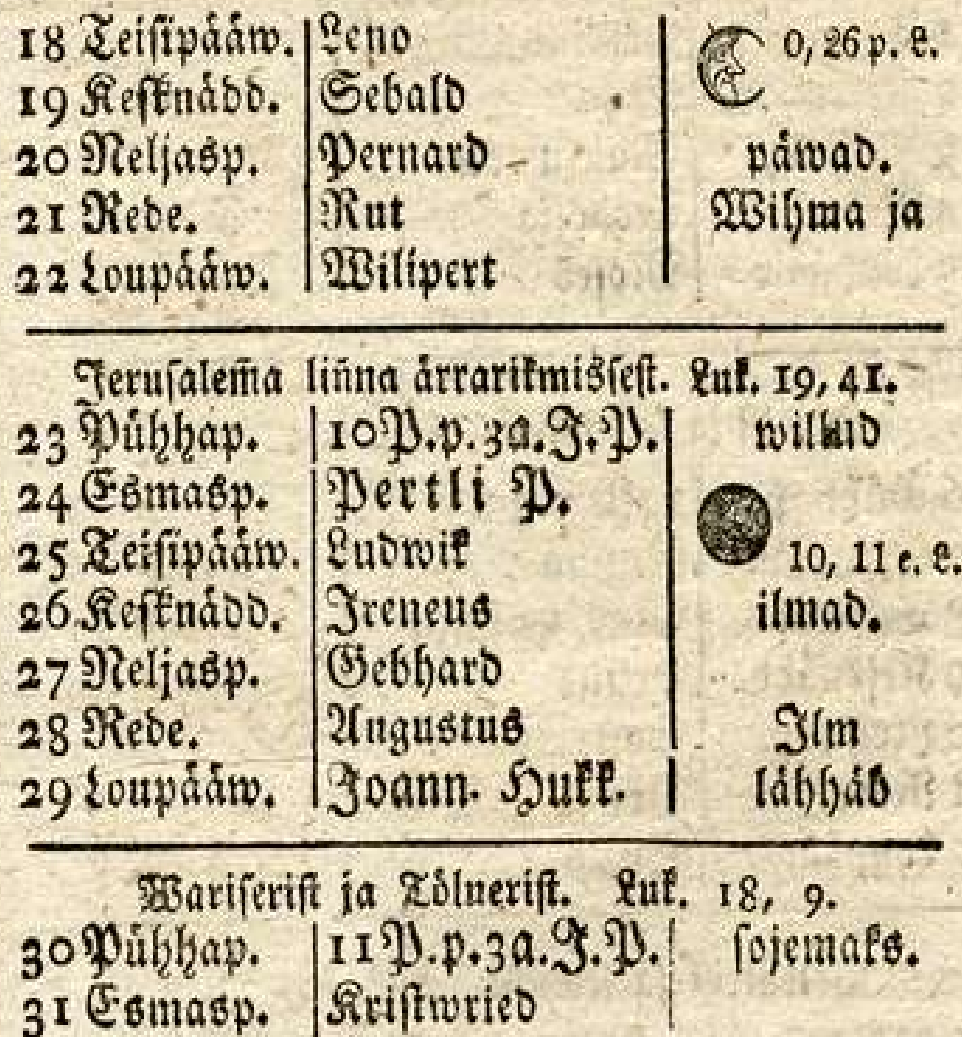 18 Teisipääw. Leno 0, 26 p. L.
19 Kesknädd. Sebald
20 Neljasp. Pernard päwad.
21 Rede. Rut Wihma ja
22 Loupääw. Wilipert
Jerusalem̃a lin̄na ärrarikmissest. Luk. 19, 41.
23 Pühhap. 10 P. p. 3a. J. P. willud
24 Esmasp. Pertli P.
25 Teisipääw. Ludwik 10, 11 e. L.
26 Kesknädd. Ireneus ilmad.
27 Neljasp. Gebhard
28 Rede. Augustus Ilm
29 Loupääw. Joann. Hukk. lähhäb
Wariserist ja Tölnerist. Luk. 18, 9.
30 Pühhap. 11 P. p. 3a. J. P. sojemaks.
31 Esmasp. Kristwried